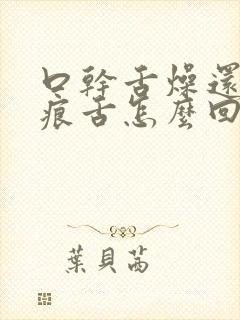 口幹舌燥還
痕舌怎麼回
葉貝茜